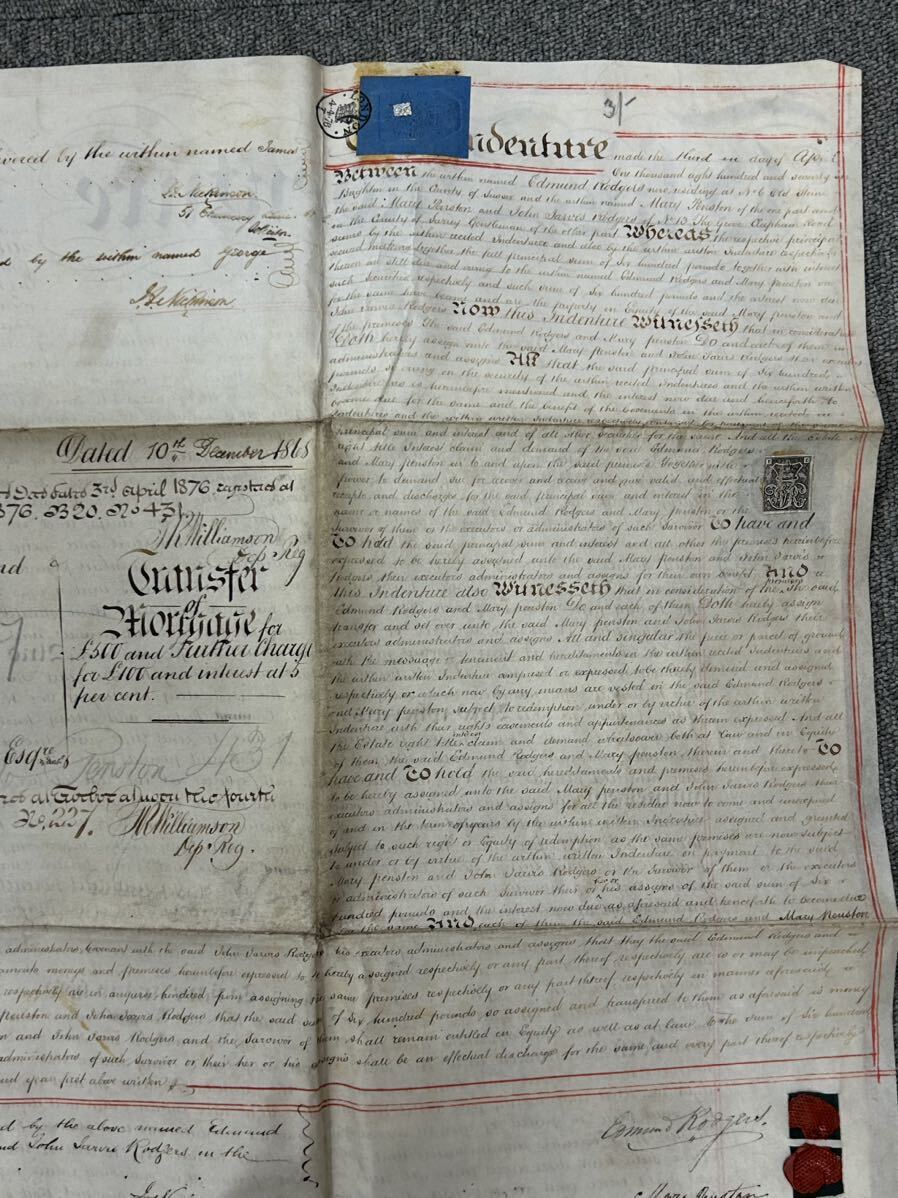 3/-
Indenture made the third day of April
One thousand eight hundred and seventy
Between the within named Edmund Rodgers now residing at No 6 Old Steine
Brighton in the County of Sussex and the within named Mary Penston of the one part and
the said Mary Penston and John Jarvis Rodgers of No 13 Clapham Road
in the County of Surrey Gentleman of the other part Whereas the respective principal
sums by the within recited Indenture and also by the within written Indenture respectively
secured making together the full principal sum of Six hundred pounds together with interest
thereon are still due and owing to the within named Edmund Rodgers and Mary Penston on
such Securities respectively and such sum of Six hundred pounds and the interest now due
for the same have become and are the property in Equity of the said Mary Penston and
John Jarvis Rodgers Now this Indenture Witnesseth that in consideration
of the premises the said Edmund Rodgers and Mary Penston Do and each of them
Doth hereby assign unto the said Mary Penston and John Jarvis Rodgers their executors
administrators and assigns All that the said principal sum of Six hundred
pounds so owing on the security of the within recited Indentures and the within written
Indenture as is hereinbefore mentioned and the interest now due and henceforth to
become due for the same and the benefit of the Covenants in the within recited
Indentures and the within written Indenture respectively contained for payment of the same
principal sum and interest and of all other securities for the same And all the Estate
right title Interest claim and demand of the said Edmund Rodgers
and Mary Penston in to and upon the said premises Together with
power to demand sue for recover and receive and give valid and effectual
receipts and discharges for the said principal sum and interest in the
name or names of the said Edmund Rodgers and Mary Penston or the
Survivor of them or the executors or administrators of such Survivor To have and
To hold the said principal sum and interest and all other the premises hereinbefore
expressed to be hereby assigned unto the said Mary Penston and John Jarvis
Rodgers their executors administrators and assigns for their own benefit And
this Indenture also Witnesseth that in consideration of the premises the said
Edmund Rodgers and Mary Penston Do and each of them Doth hereby assign
transfer and set over unto the said Mary Penston and John Jarvis Rodgers their
executors administrators and assigns All and singular the piece or parcel of ground
with the messuage or tenement and hereditaments in the within recited Indentures and
the within written Indenture comprised or expressed to be thereby demised and assigned
respectively or which now by any means are vested in the said Edmund Rodgers
and Mary Penston subject to redemption under or by virtue of the within written
Indenture with their rights easements and appurtenances as therein expressed And all
the Estate right title interest claim and demand whatsoever both at Law and in Equity
of them the said Edmund Rodgers and Mary Penston therein and thereto To
have and To hold the said hereditaments and premises hereinbefore expressed
to be hereby assigned unto the said Mary Penston and John Jarvis Rodgers their
executors administrators and assigns for all the residue now to come and unexpired
of and in the term of years by the within written Indenture assigned and granted
subject to such right or Equity of redemption as the same premises are now subject
to under or by virtue of the within written Indenture on payment to the said
Mary Penston and John Jarvis Rodgers or the Survivor of them or the executors
or administrators of such Survivor their her or his assigns of the said sum of Six
hundred pounds and the interest now due as aforesaid and henceforth to become due
for the same And each of them the said Edmund Rodgers and Mary Penston
administrators Covenant with the said John Jarvis Rodgers his executors administrators and assigns that they the said Edmund Rodgers and
moneys and premises hereinbefore expressed to be hereby assigned respectively or any part thereof respectively are is or may be impeached
respectively are is in anywise hindered from assigning the same premises respectively or any part thereof respectively in manner aforesaid
Penston and John Jarvis Rodgers that the said sum of Six hundred pounds so assigned and transferred to them as aforesaid is money
and John Jarvis Rodgers and the Survivor of them shall remain entitled in Equity as well as at law to the sum of Six hundred
administrators of such Survivor or their her or his assigns shall be an effectual discharge for the same and every part thereof respectively
and year first above written
livered by the within named James
51 Chancery Lane
d by the within named George
Dated 10th December 1868
Deed dated 3rd April 1876 registered at
1876. B20. No 431.
JR Williamson
Dep. Reg
Transfer
of
Mortgage for
£500 and Further Charge
for £100 and interest at 5
per cent.
Esqre
Penston
at Twelve at noon the fourth
No. 227.
JR Williamson
Dep. Reg.
d by the above named Edmund
and John Jarvis Rodgers in the
Edmund Rodgers
Mary Penston